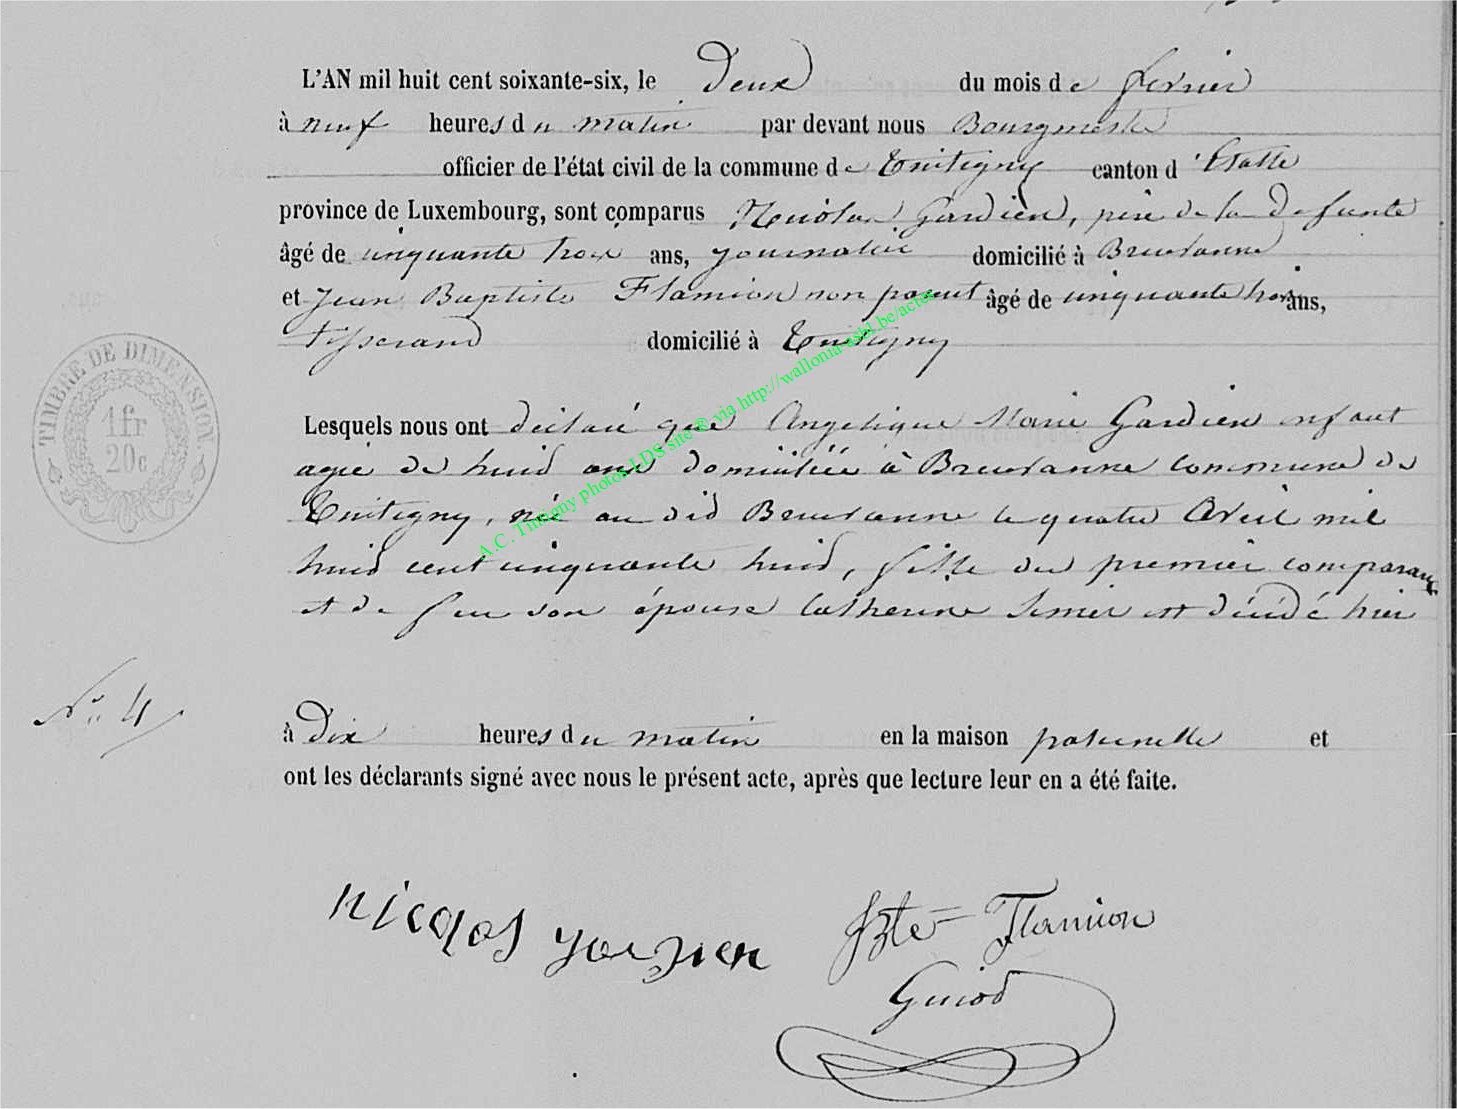 L'AN mil huit cent soixante-six, le Deux du mois de fevrier
à neuf heures du matin par devant nous Bourgmestre
officier de l'état civil de la commune de Tintigny canton d'Etalle
province de Luxembourg, sont comparus Nicolas Gardien, père de la defunte
âgé de cinquante trois ans, journalier domicilié à Breuvanne
et Jean Baptiste Flamion non parent âgé de cinquante trois ans,
tisserand domicilié à Tintigny
Lesquels nous ont déclaré que Angelique Marie Gardien enfant
agée de huid ans domiciliée à Breuvanne commune de
Tintigny, née au did Breuvanne le quatre Avril mil
huid cent cinquante huid, fille du premier comparant
et de feu son épouse Catherine est décédé hier
N° 4
à Dix heures du matin en la maison paternelle et
ont les déclarants signé avec nous le présent acte, après que lecture leur en a été faite.
nicolas gardien
JBte Flamion
Guiod
TIMBRE DE DIMENSION.
1fr
20c
A.C. Tintigny photos LDS site® via http://wallonia-asbl.be/actes